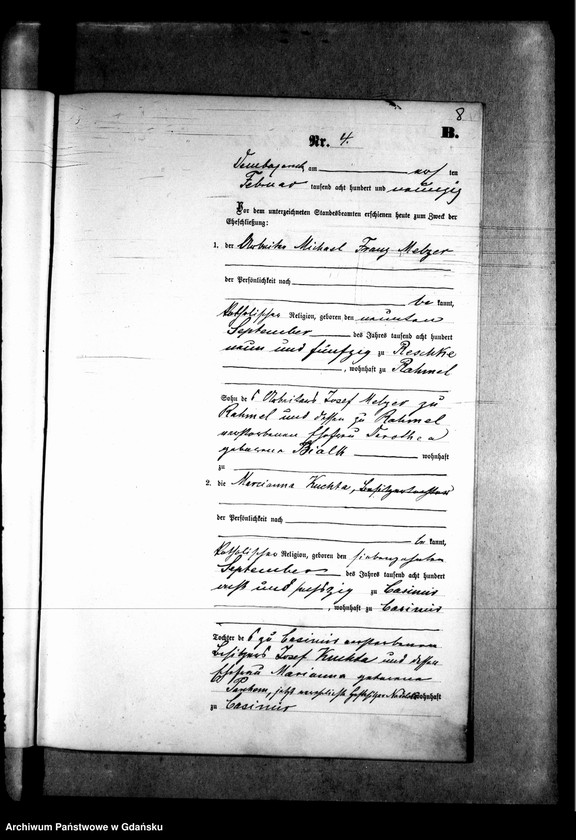 8
B.
Nr. 4.
am acht ten
Februar tausend acht hundert und neunzig
Vor dem unterzeichneten Standesbeamten erschienen heute zum Zweck der
Eheschließung:
1. der Arbeiter Michael Franz Melzer
der Persönlichkeit nach
be kannt,
katholischer Religion, geboren den neunten
September des Jahres tausend acht hundert
neun und fünfzig zu Reschke
, wohnhaft zu Rahmel
Sohn des Arbeiters Josef Melzer zu
Rahmel und dessen zu Rahmel
verstorbenen Ehefrau Dorothea
geborene Bialk wohnhaft
zu
2. die Marianna Kuchta, Besitzertochter
der Persönlichkeit nach
be kannt,
katholischer Religion, geboren den siebenzehnten
September des Jahres tausend acht hundert
und sechszig zu Casimir
, wohnhaft zu Casimir
Tochter des zu Casimir verstorbenen
Besitzers Josef Kuchta und dessen
Ehefrau Marianna geborene
jetzt verehelichte wohnhaft
zu Casimir
Archiwum Państwowe w Gdańsku